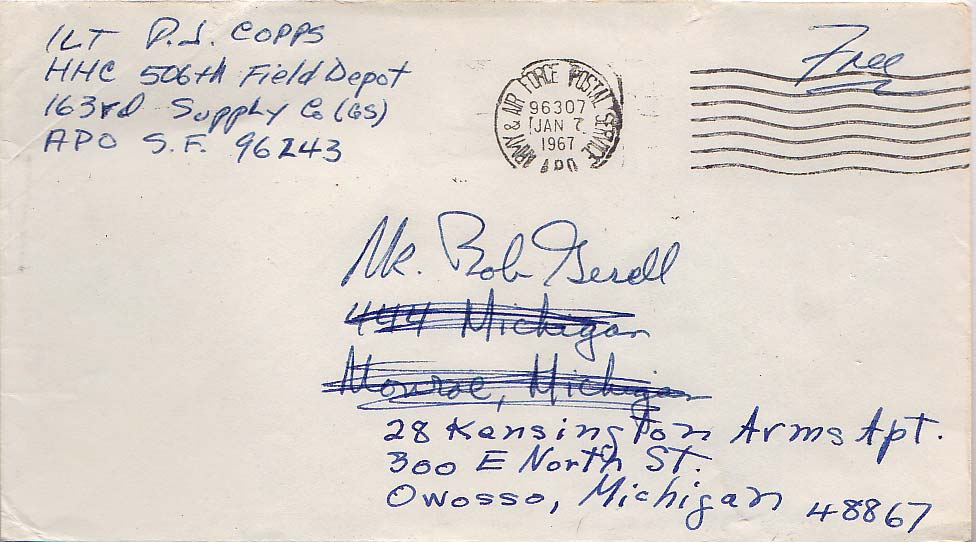 1LT P.J. COPPS
HHC 506th Field Depot
163rd Supply Co (GS)
APO S.F. 96243
ARMY & AIR FORCE POSTAL SERVICE
96307
JAN 7
1967
APO
Free
Mr. Bob Gerell
444 Michigan
Monroe, Michigan
28 Kensington Arms Apt.
300 E North St.
Owosso, Michigan 48867